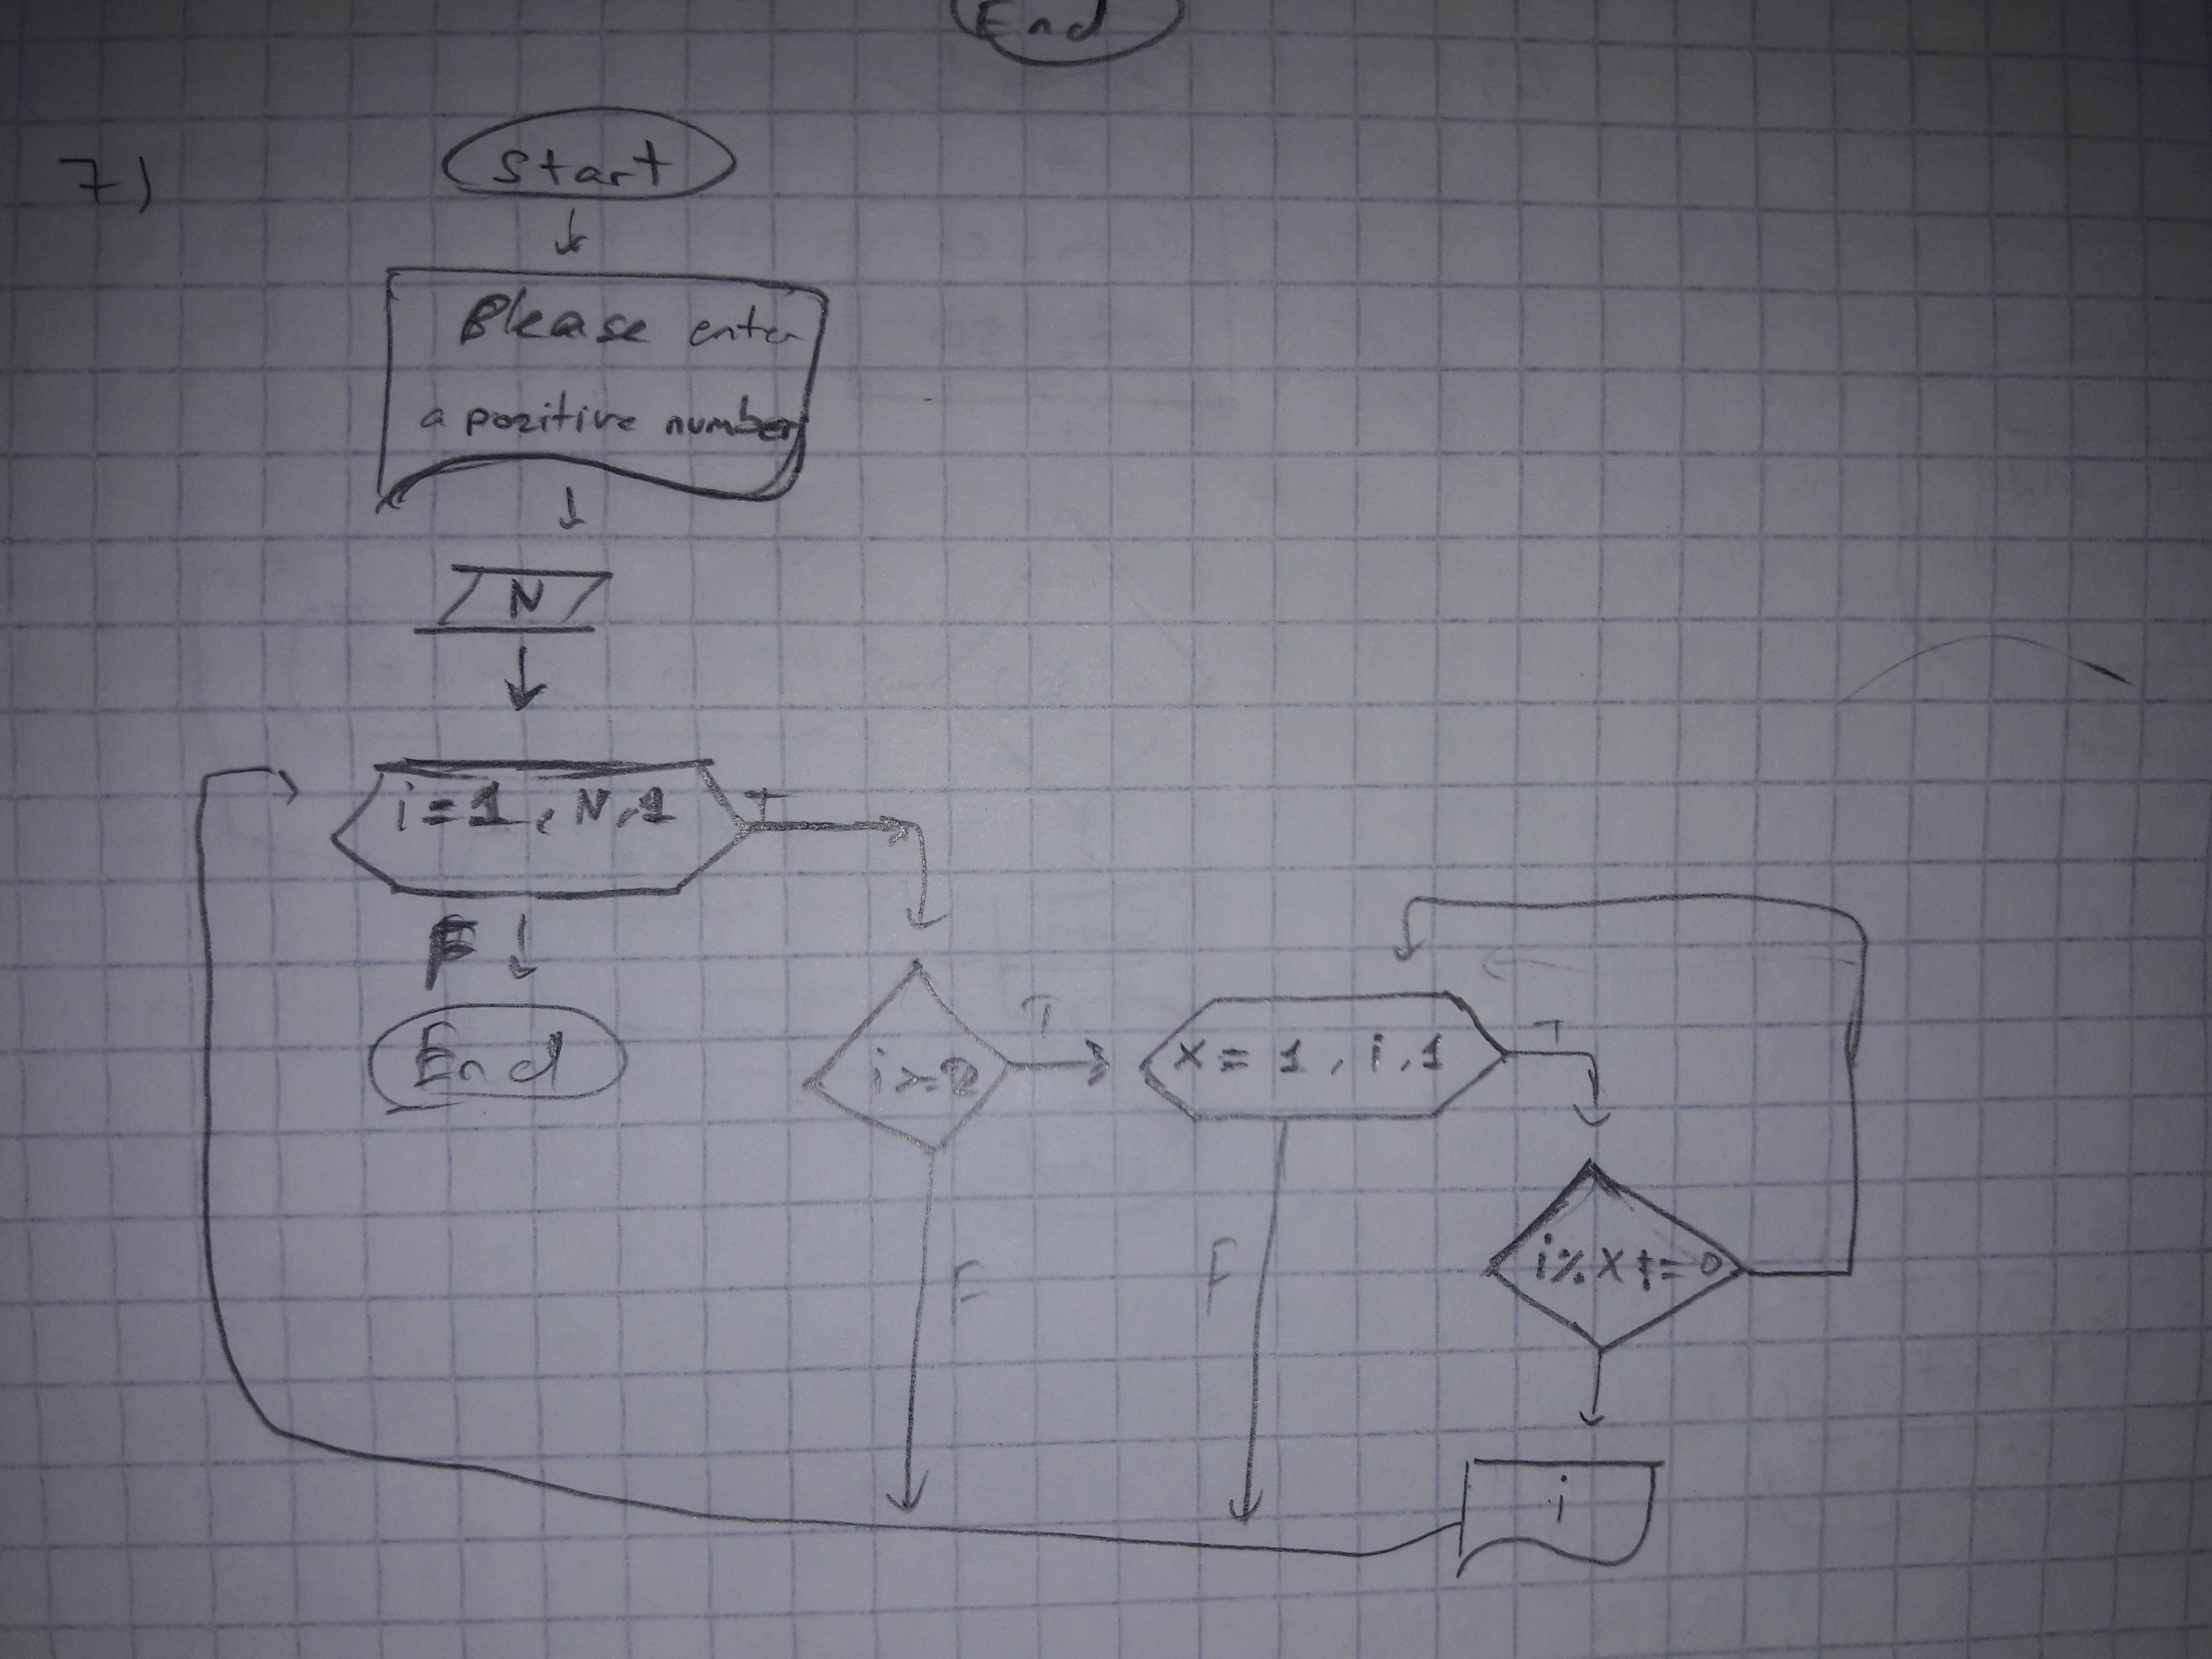 End
7)
Start
Please enter
a pozitive number
N
i=1, N,1
T
F
End
i>=2
T
F
x = 1, i,1
T
F
i%x!=0
i